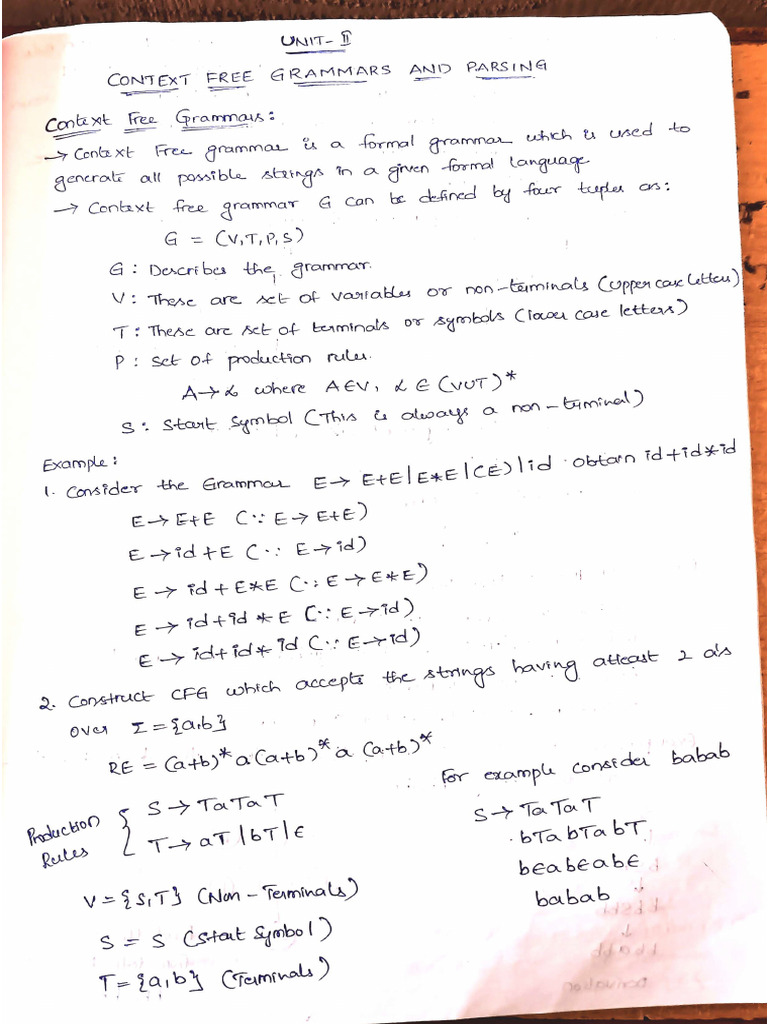 UNIT-II
CONTEXT FREE GRAMMARS AND PARSING
Context Free Grammars:
→ Context Free grammar is a formal grammar which is used to
generate all possible strings in a given formal language
→ Context free grammar G can be defined by four tuples as:
G = (V,T,P,S)
G : Describes the grammar.
V : These are set of variables or non-terminals (uppercase letters)
T : These are set of terminals or symbols (lower case letters)
P : set of production rules.
A→α where A∈V, α∈(VUT)*
S : Start Symbol (This is always a non-terminal)
Example:
1. Consider the Grammar E→ E+E|E*E|(E)|id . obtain id+id*id
E→E+E (∵ E→E+E)
E→id+E (∵ E→id)
E→ id+E*E (∵ E→E*E)
E→ id+id*E (∵ E→id)
E→ id+id*id (∵ E→id)
2. Construct CFG which accepts the strings having atleast 2 a's
over Σ={a,b}
RE = (a+b)*a(a+b)*a (a+b)*
Production Rules
S→TaTaT
T→aT|bT|∈
V={S,T} (Non-Terminals)
S = S (Start Symbol)
T={a,b} (Terminals)
For example consider babab
S→TaTaT
bTabTabT
b∈ab∈ab∈
babab